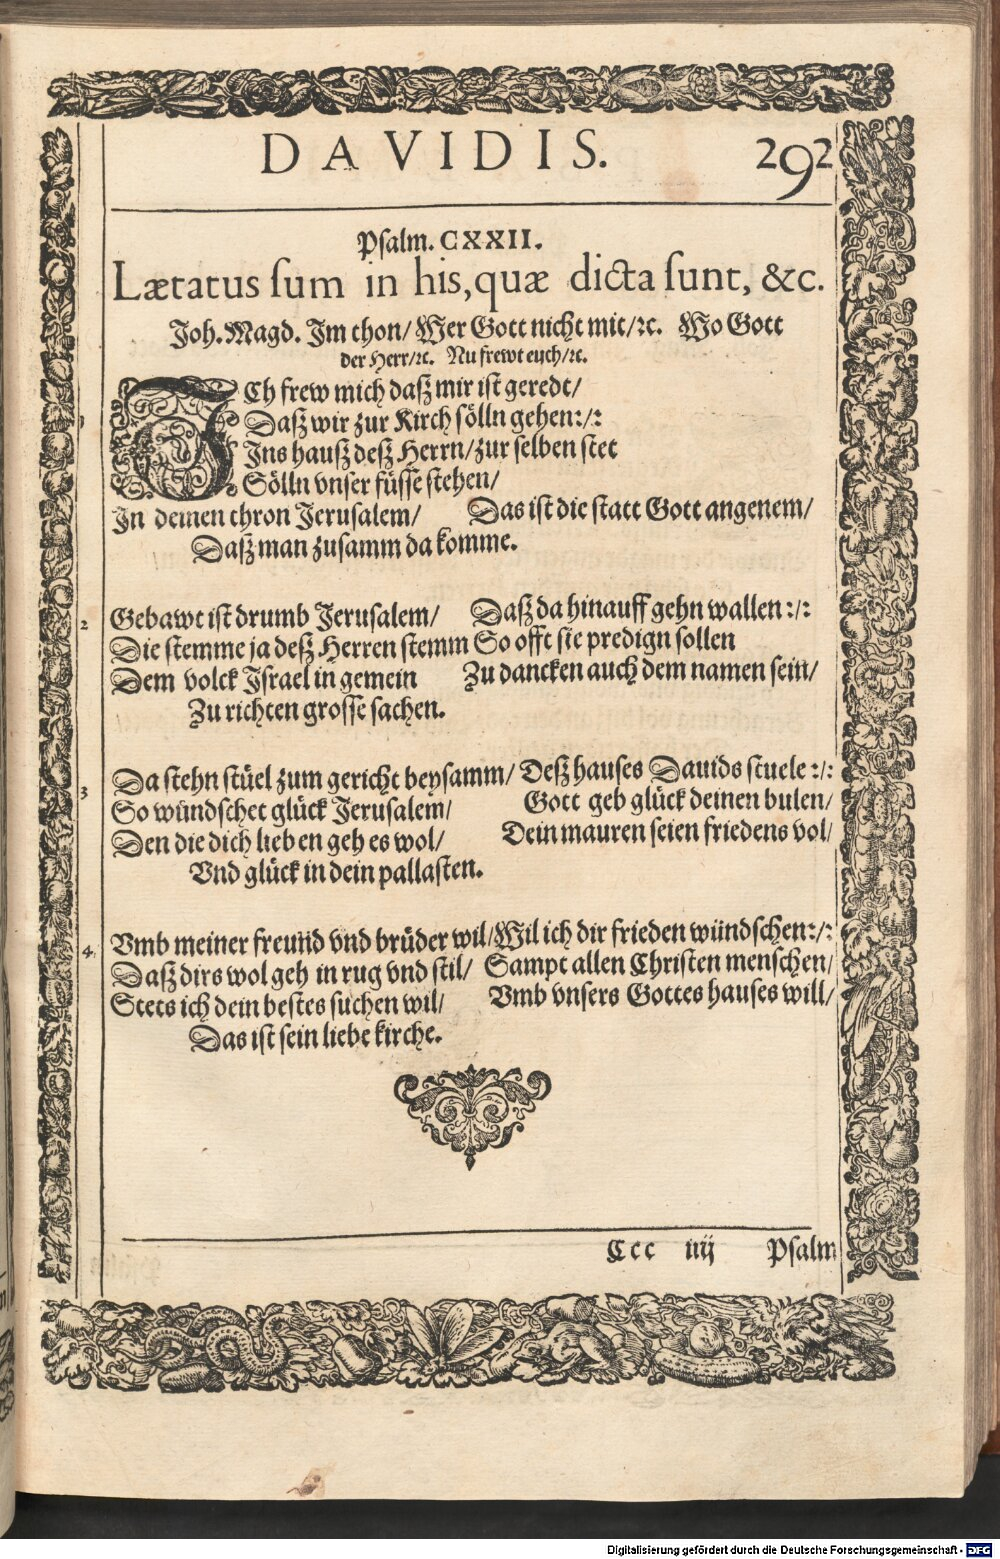 DAVIDIS. 292
Psalm. CXXII.
Lætatus ſum in his, quæ dicta ſunt, &c.
Joh. Magd. Im thon/ Wer Gott nicht mit/ꝛc. Wo Gott
der Herr/ꝛc. Nu frewt euch/ꝛc.
1 ICh frew mich daß mir iſt geredt/
Daß wir zur Kirch ſölln gehen:/:
Ins hauß deß Herrn/ zur ſelben ſtet
Sölln vnſer füſſe ſtehen/
In deinen thron Jeruſalem/ Das iſt die ſtatt Gott angenem/
Daß man zuſamm da komme.
2 Gebawt iſt drumb Jeruſalem/ Daß da hinauff gehn wallen:/:
Die ſtemme ja deß Herren ſtemm So offt ſie predign ſollen
Dem volck Iſrael in gemein Zu dancken auch dem namen ſein/
Zu richten groſſe ſachen.
3 Da ſtehn ſtüel zum gericht beyſamm/ Deß hauſes Dauids ſtuele:/:
So wündſchet glück Jeruſalem/ Gott geb glück deinen bulen/
Den die dich lieben geh es wol/ Dein mauren ſeien friedens vol/
Vnd glück in dein pallaſten.
4. Vmb meiner freund vnd brüder wil/ Wil ich dir frieden wündſchen:/:
Daß dirs wol geh in rug vnd ſtil/ Sampt allen Chriſten menſchen/
Stets ich dein beſtes ſuchen wil/ Vmb vnſers Gottes hauſes will/
Das iſt ſein liebe kirche.
Ccc iiij Psalm
Digitalisierung gefördert durch die Deutsche Forschungsgemeinschaft - DFG